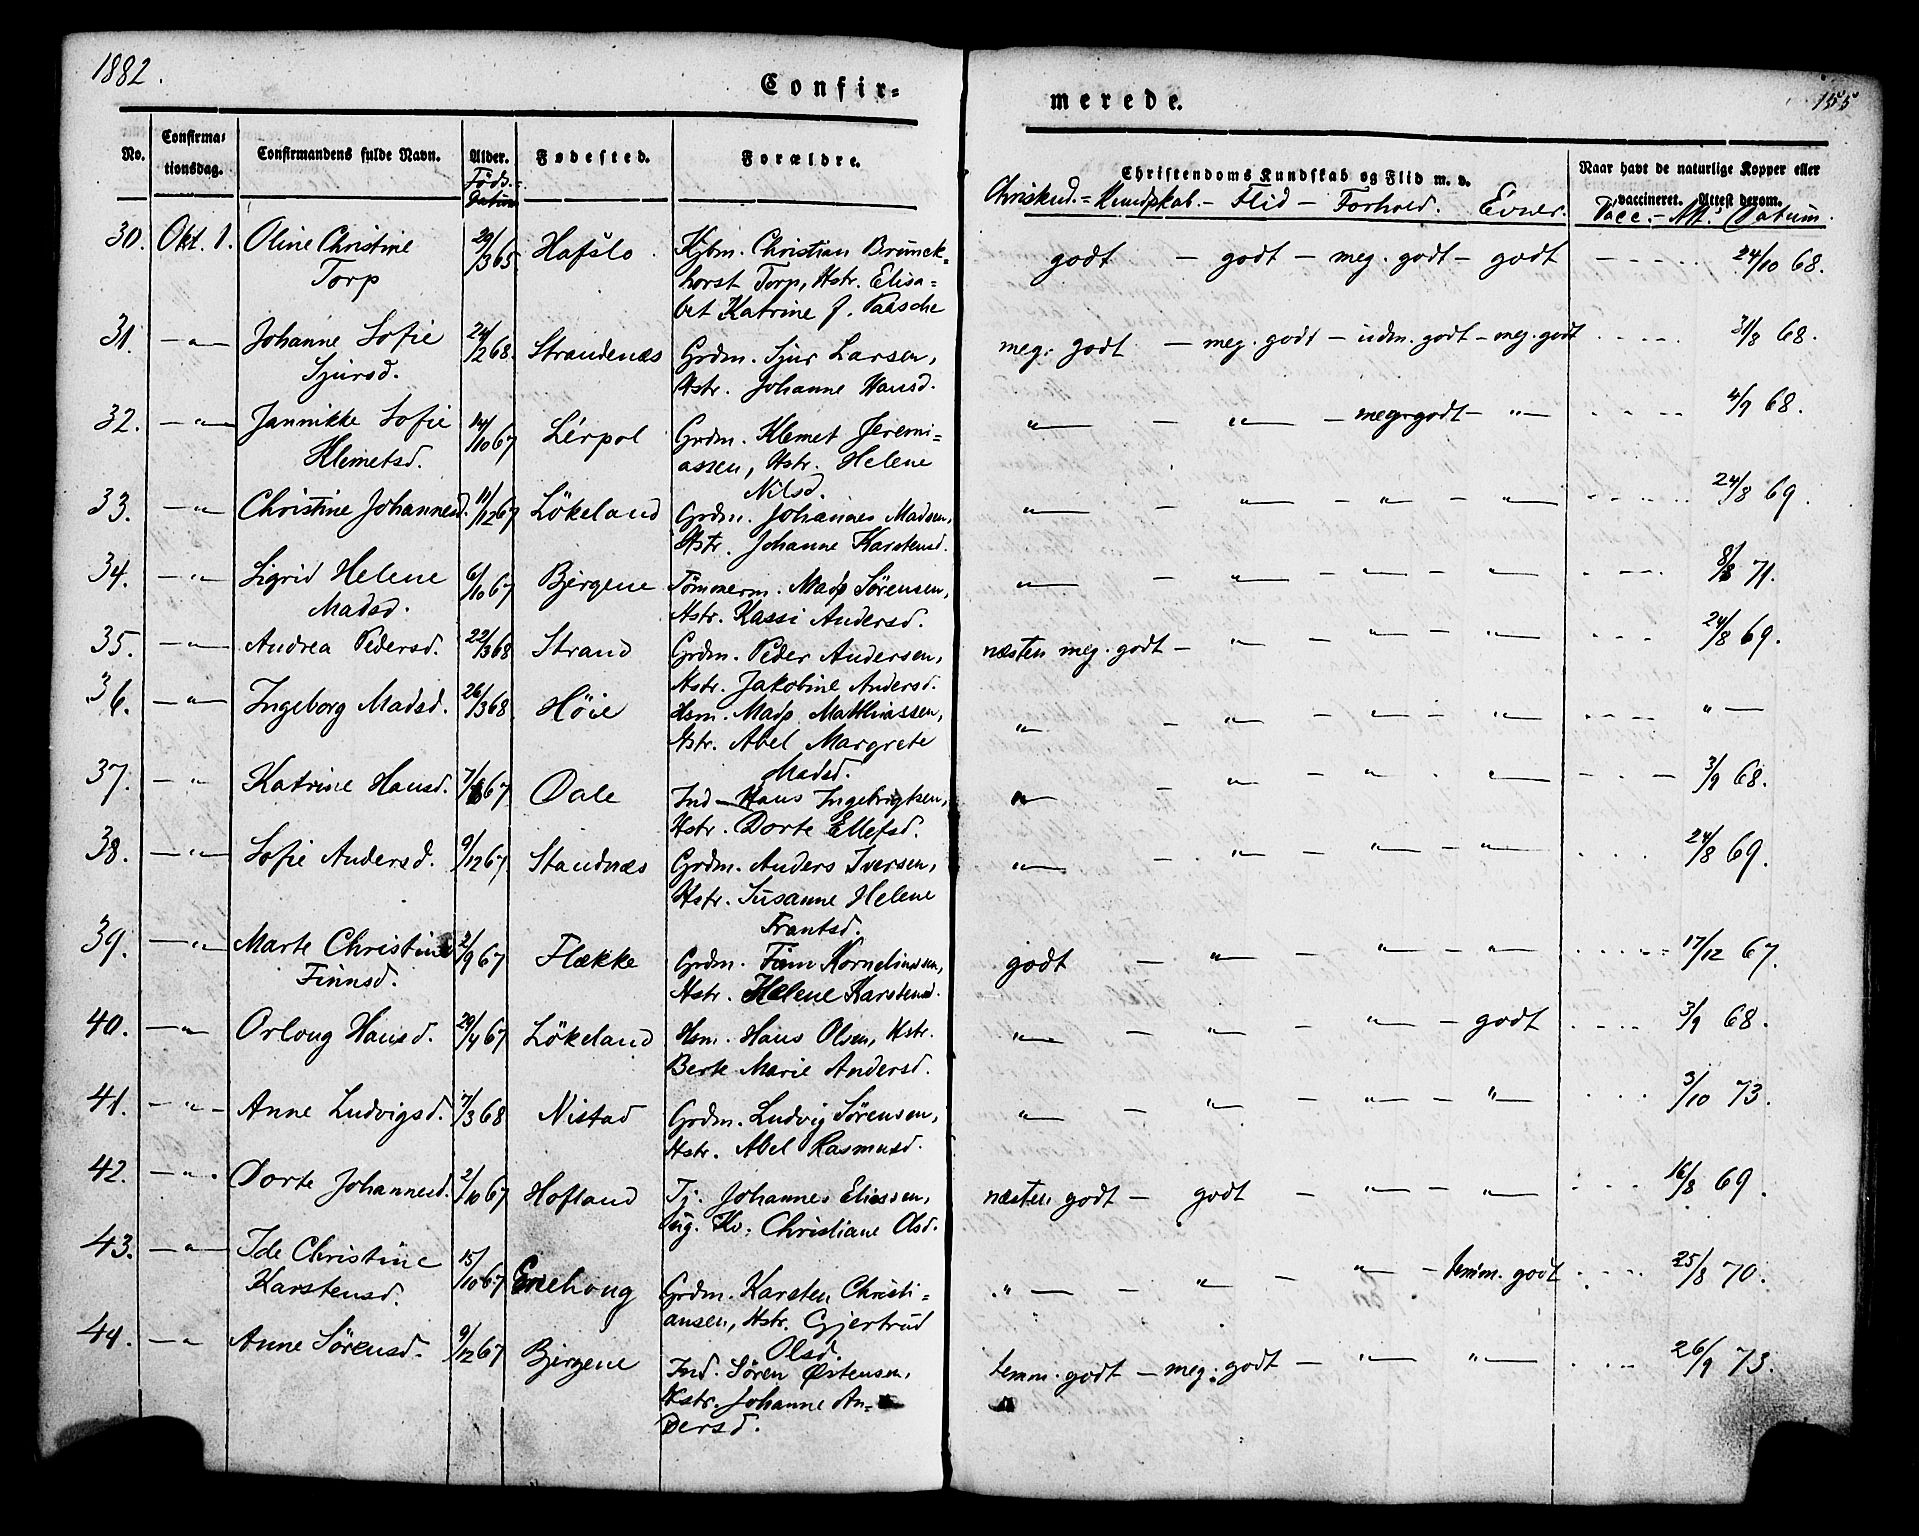 1882.
Confir-
merede.
155
No.
Confirma-
tionsdag.
Confirmandens fulde Navn.
Alder.
Föds.-
datum
Fødested.
Forældre.
Christendoms Kundskab og Flid m. v.
Naar havt de naturlige Kopper eller
vaccineret. Attest derom.
Kundskab. - Flid - Forhold. Evner.
Vacc. - Att. Datum.
30. Okt. 1. Oline Christine 29/3 65 Hafslo. Kjbm. Christian Brunck- godt - godt - meg. godt - godt - - - - - 24/10 68.
Torp horst Torp, Hstr. Elisa-
bet Katrine f. Paasche
31. - " - Johanne Sofie 24/2 68. Strandenæs Grdm. Sjur Larsen, meg. godt - meg. godt - udm. godt - meg. godt - - - - 31/8 68.
Sjursd. Hstr. Johanne Hansd.
32. - " - Jannikke Sofie 14/10 67 Lérpol Grdm. Klemet Jeremi- " - " - meg. godt - " - - - - - 4/9 68.
Klemetsd. assen, Hstr. Helene
Nilsd.
33. - " - Christine Johannesd. 11/12 67 Lökeland Grdm. Johannes Madsen, " - " - " - " - - - - - 24/8 69.
Hstr. Johanne Karstensd.
34. - " - Sigrid Helene 6/10 67 Bjergene Tömmerm. Mads Sörensen, " - " - " - " - - - - - 8/8 71.
Madsd. Hstr. Kassi Andersd.
35. - " - Andrea Pedersd. 22/3 68 Strand Grdm. Peder Andersen, næsten meg. godt - " - " - " - - - - 24/8 69.
Hstr. Jakobine Andersd.
36. - " - Ingeborg Madsd. 26/3 68. Höie Hsm. Mads Matthiassen, " - " - " - " - - - - - " -
Hstr. Abel Margrete
Madsd.
37. - " - Katrine Hansd. 67 Dale Ind - Hans Ingebrigtsen, " - " - " - " - - - - 3/9 68.
Hstr. Dorte Ellefsd.
38. - " - Sofie Andersd. 9/12 67. Standnæs Grdm. Anders Iversen, " - " - " - " - - - - 24/8 69.
Hstr. Susanne Helene
Frantsd.
39. - " - Marte Christine 2/9 67 Flække Grdm. Finn Kornelius­sen, godt - " - " - " - - - - - 17/12 67.
Finnsd. Hstr. Helene Karstensd.
40. - " - Orloug Hansd. 29/4 67 Lökeland Hsm. Hans Olsen, Hstr. " - " - " - godt - - - - 3/9 68.
Berte Marie Andersd.
41. - " - Anne Ludvigsd. 7/3 68 Nistad Grdm. Ludvig Sörensen, " - " - " - " - - - - 3/10 73.
Hstr. Abel Rasmusd.
42. - " - Dorte Johannesd. 2/10 67 Hofland Tj. Johannes Eliassen, næsten godt - godt - " - " - - - - 16/8 69.
ug. Kv: Christiane Olsd.
43. - " - Ide Christine 15/10 67 Enehoug Grdm. Karsten Christi- " - " - " - temm. godt - - - - 25/8 70.
Karstensd. ansen, Hstr. Gjertrud
Olsd.
44. - " Anne Sörensd. 9/12 67 Bjergene Ind. Sören Östensen, temm. godt - meg. godt - " - " - - - - 26/9 73.
Hstr. Johanne An-
dersd.